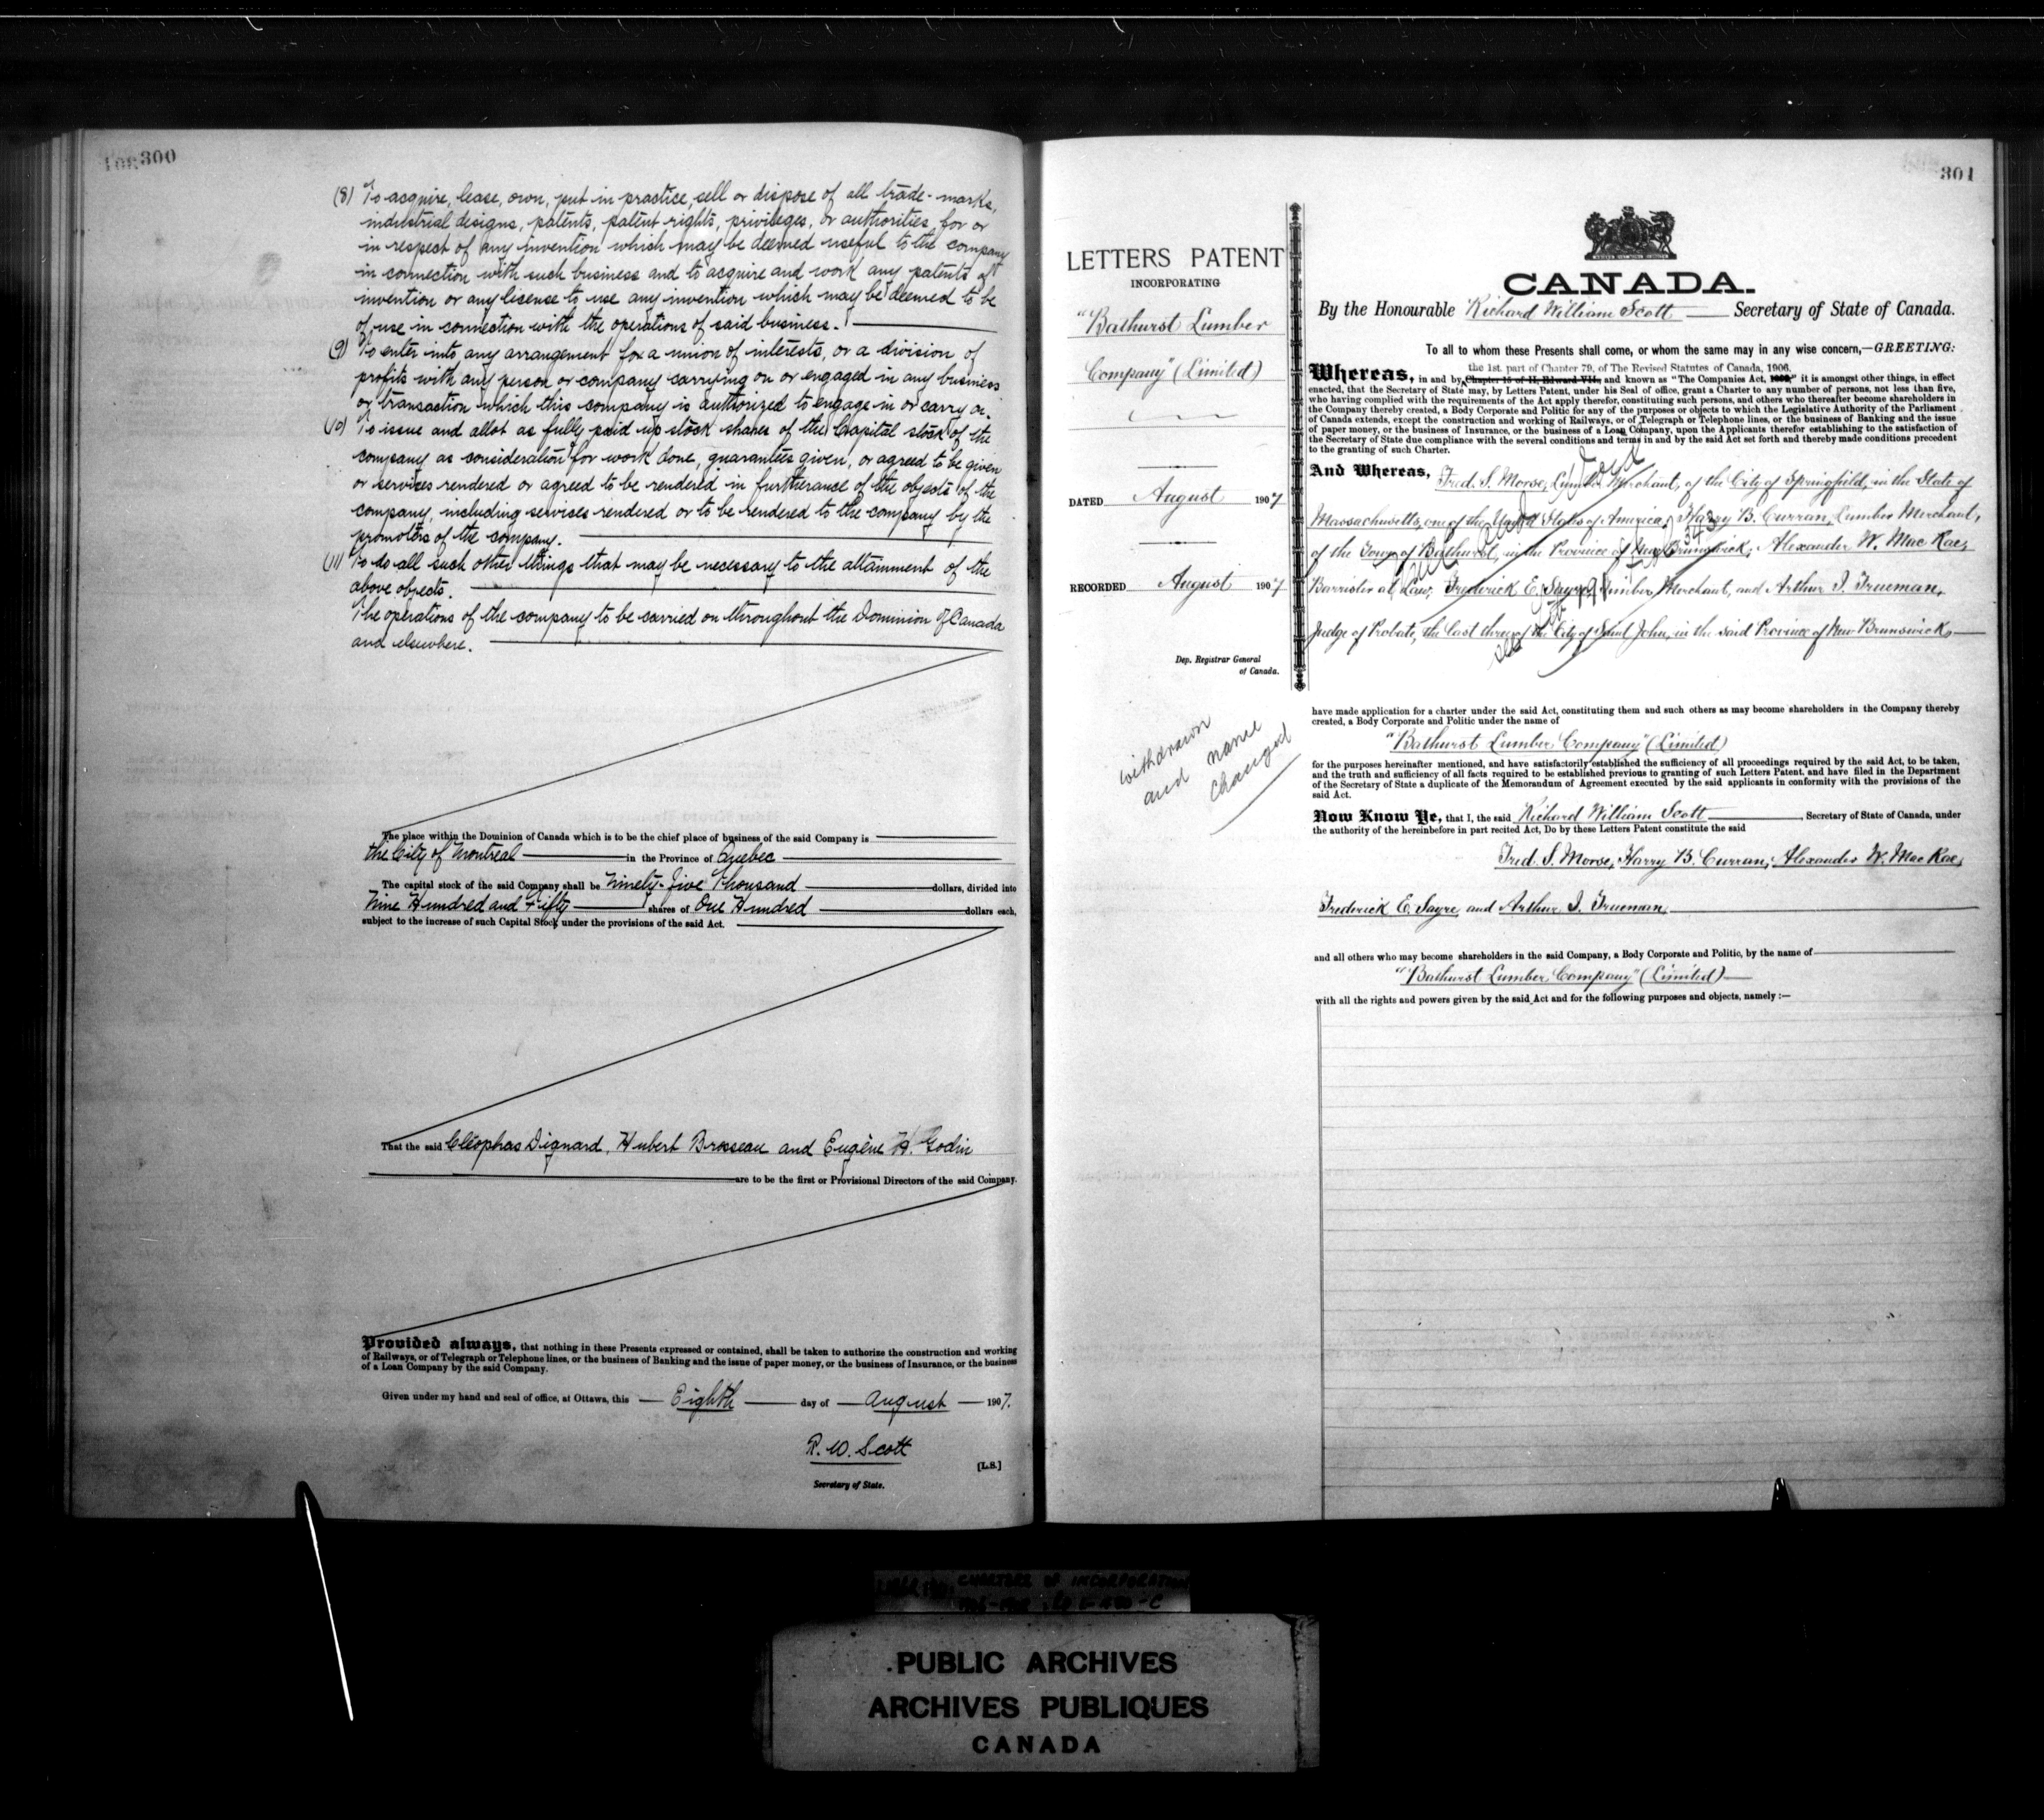 300
(8) To acquire, lease, own, put in practice, sell or dispose of all trade-marks,
industrial designs, patents, patent rights, privileges, or authorities for or
in respect of any invention which may be deemed useful to the company
in connection with such business and to acquire and work any patents of
invention or any license to use any invention which may be deemed to be
of use in connection with the operations of said business.
(9) To enter into any arrangement for a union of interests, or a division of
profits with any person or company carrying on or engaged in any business
or transaction which this company is authorized to engage in or carry on.
(10) To issue and allot as fully paid up stock shares of the Capital stock of the
company as consideration for work done, guarantees given, or agreed to be given
or services rendered or agreed to be rendered in furtherance of the objects of the
company, including services rendered or to be rendered to the company by the
promoters of the company.
(11) To do all such other things that may be necessary to the attainment of the
above objects.
The operations of the company to be carried on throughout the Dominion of Canada
and elsewhere.
The place within the Dominion of Canada which is to be the chief place of business of the said Company is
the City of Montreal in the Province of Quebec
The capital stock of the said Company shall be Ninety-Five Thousand dollars, divided into
Nine Hundred and Fifty shares of One Hundred dollars each,
subject to the increase of such Capital Stock under the provisions of the said Act.
That the said Cléophas Dignard, Hubert Brosseau and Eugène H. Godin
are to be the first or Provisional Directors of the said Company.
Provided always, that nothing in these Presents expressed or contained, shall be taken to authorize the construction and working
of Railways, or of Telegraph or Telephone lines, or the business of Banking and the issue of paper money, or the business of Insurance, or the business
of a Loan Company by the said Company.
Given under my hand and seal of office, at Ottawa, this Eighth day of August 1907.
R. W. Scott
[L.S.]
Secretary of State.
301
LETTERS PATENT
INCORPORATING
"Bathurst Lumber
Company" (Limited)
DATED August 1907
RECORDED August 1907
Dep. Registrar General
of Canada.
withdrawn
and name
changed
CANADA.
By the Honourable Richard William Scott Secretary of State of Canada.
To all to whom these Presents shall come, or whom the same may in any wise concern,—GREETING:
the 1st. part of Chapter 79, of The Revised Statutes of Canada, 1906,
Whereas, in and by Chapter 15 of II, Edward VII., and known as "The Companies Act, 1902," it is amongst other things, in effect
enacted, that the Secretary of State may, by Letters Patent, under his Seal of office, grant a Charter to any number of persons, not less than five,
who having complied with the requirements of the Act apply therefor, constituting such persons, and others who thereafter become shareholders in
the Company thereby created, a Body Corporate and Politic for any of the purposes or objects to which the Legislative Authority of the Parliament
of Canada extends, except the construction and working of Railways, or of Telegraph or Telephone lines, or the business of Banking and the issue
of paper money, or the business of Insurance, or the business of a Loan Company, upon the Applicants therefor establishing to the satisfaction of
the Secretary of State due compliance with the several conditions and terms in and by the said Act set forth and thereby made conditions precedent
to the granting of such Charter.
And Whereas, Fred. S. Morse, Lumber Merchant, of the City of Springfield, in the State of
Massachusetts, one of the United States of America, Harry B. Curran, Lumber Merchant,
of the Town of Bathurst, in the Province of New Brunswick, Alexander W. Mac Rae,
Barrister at Law, Frederick E. Sayre, Lumber Merchant, and Arthur I. Trueman,
Judge of Probate, the last three of the City of Saint John, in the said Province of New Brunswick,
have made application for a charter under the said Act, constituting them and such others as may become shareholders in the Company thereby
created, a Body Corporate and Politic under the name of
"Bathurst Lumber Company" (Limited)
for the purposes hereinafter mentioned, and have satisfactorily established the sufficiency of all proceedings required by the said Act, to be taken,
and the truth and sufficiency of all facts required to be established previous to granting of such Letters Patent, and have filed in the Department
of the Secretary of State a duplicate of the Memorandum of Agreement executed by the said applicants in conformity with the provisions of the
said Act.
Now Know Ye, that I, the said Richard William Scott, Secretary of State of Canada, under
the authority of the hereinbefore in part recited Act, Do by these Letters Patent constitute the said
Fred. S. Morse, Harry B. Curran, Alexander W. Mac Rae,
Frederick E. Sayre and Arthur I. Trueman,
and all others who may become shareholders in the said Company, a Body Corporate and Politic, by the name of
"Bathurst Lumber Company" (Limited)
with all the rights and powers given by the said Act and for the following purposes and objects, namely :—
CHARTERS OF INCORPORATION
PUBLIC ARCHIVES
ARCHIVES PUBLIQUES
CANADA